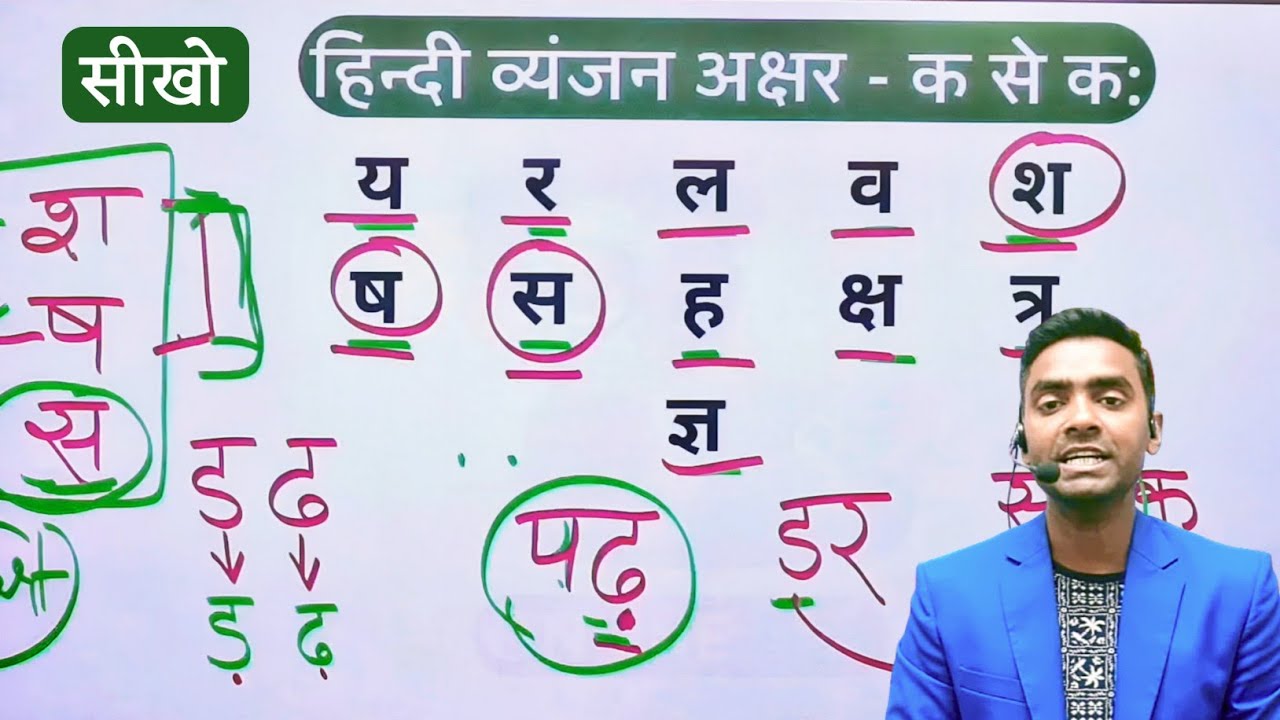 सीखो
हिन्दी व्यंजन अक्षर - क से क:
य र ल व श
ष स ह क्ष त्र
ज्ञ
श
ष
स
ड ढ
ड़ ढ़
पढ़
डर